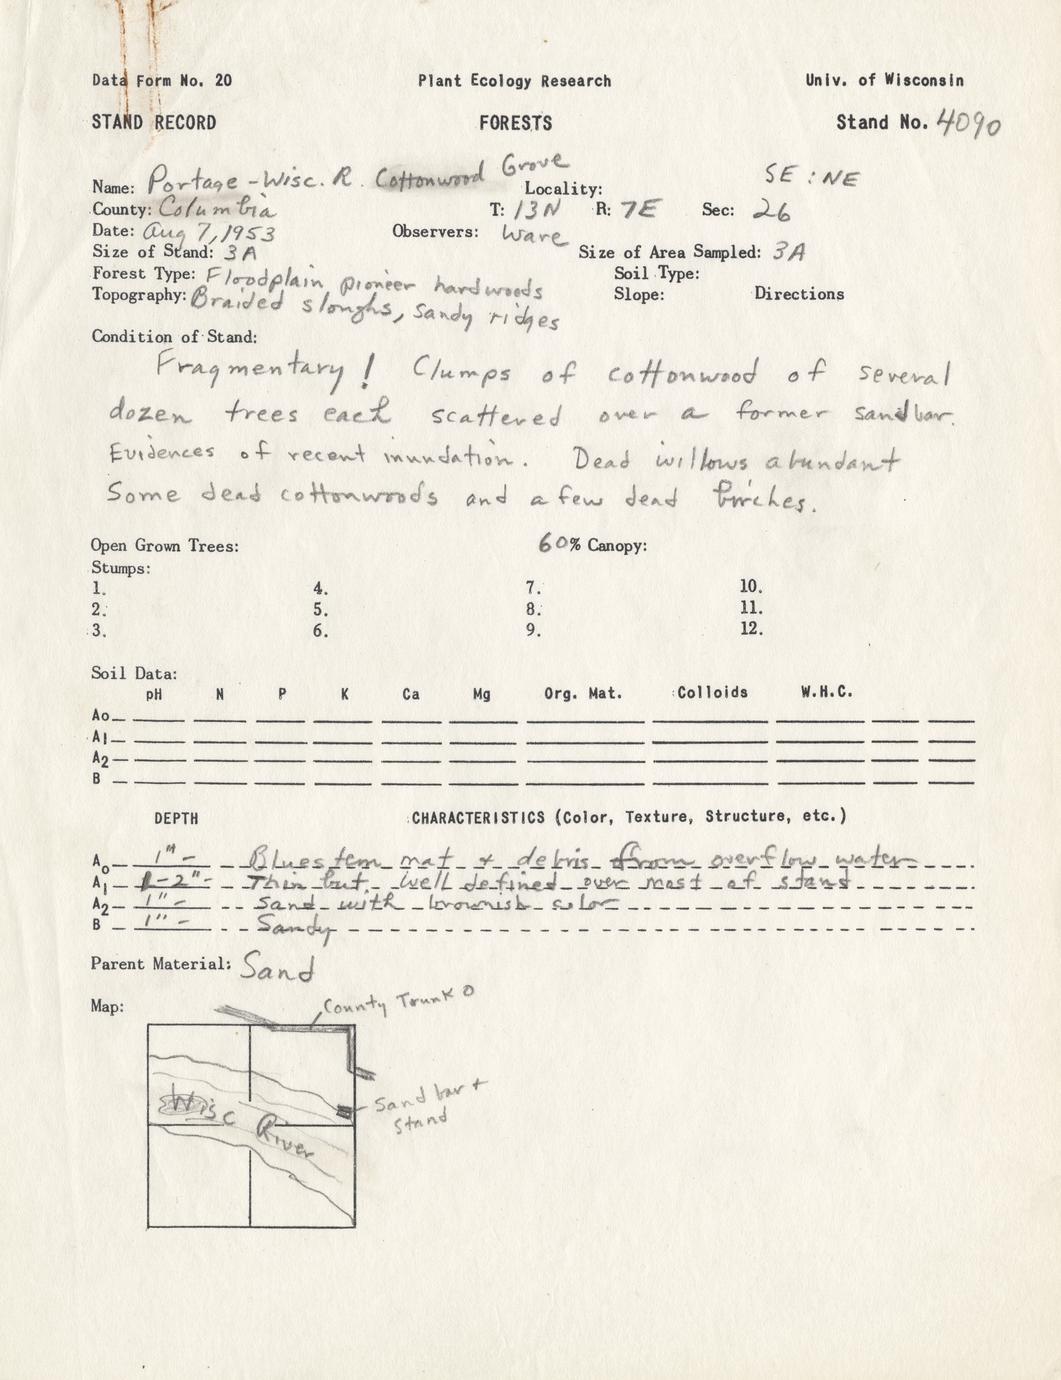 Data Form No. 20 Plant Ecology Research Univ. of Wisconsin
STAND RECORD FORESTS Stand No. 4090
Name: Portage - Wisc. R. Cottonwood Grove Locality: SE : NE
County: Columbia T: 13N R: 7E Sec: 26
Date: Aug 7, 1953 Observers: Ware
Size of Stand: 3A Size of Area Sampled: 3A
Forest Type: Floodplain pioneer hardwoods Soil Type:
Topography: Braided sloughs, sandy ridges Slope: Directions
Condition of Stand:
Fragmentary! Clumps of cottonwood of several
dozen trees each scattered over a former sandbar.
Evidences of recent inundation. Dead willows abundant
Some dead cottonwoods and a few dead birches.
Open Grown Trees: 60% Canopy:
Stumps:
1. 4. 7. 10.
2. 5. 8. 11.
3. 6. 9. 12.
Soil Data:
pH N P K Ca Mg Org. Mat. Colloids W.H.C.
Ao
A1
A2
B
DEPTH CHARACTERISTICS (Color, Texture, Structure, etc.)
Ao 1"- Bluestem mat + debris from overflow water
A1 1-2"- Thin but well defined over most of stand
A2 1"- Sand with brownish color
B 1"- Sandy
Parent Material: Sand
Map: County Trunk O
Sand bar +
Stand
Wisc River